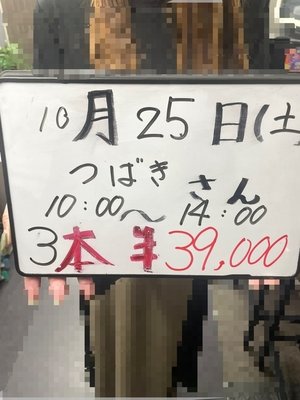 10月25日(土
つばきさん
10:00〜14:00
3本 ¥39,000